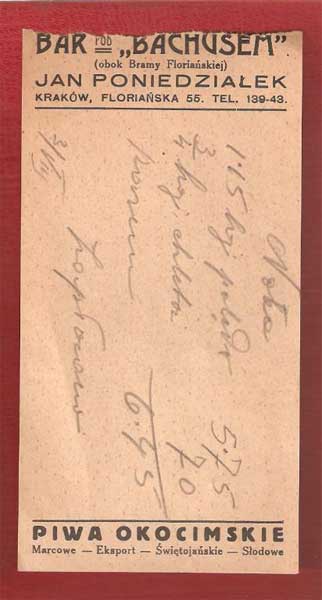 BAR POD „BACHUSEM"
(obok Bramy Floriańskiej)
JAN PONIEDZIAŁEK
KRAKÓW, FLORIAŃSKA 55. TEL. 139-43.
Nota
1·45 5.75
3/4 kg chleba 70
Razem 6.45
3/VII Zapłacono
PIWA OKOCIMSKIE
Marcowe — Eksport — Świętojańskie — Słodowe